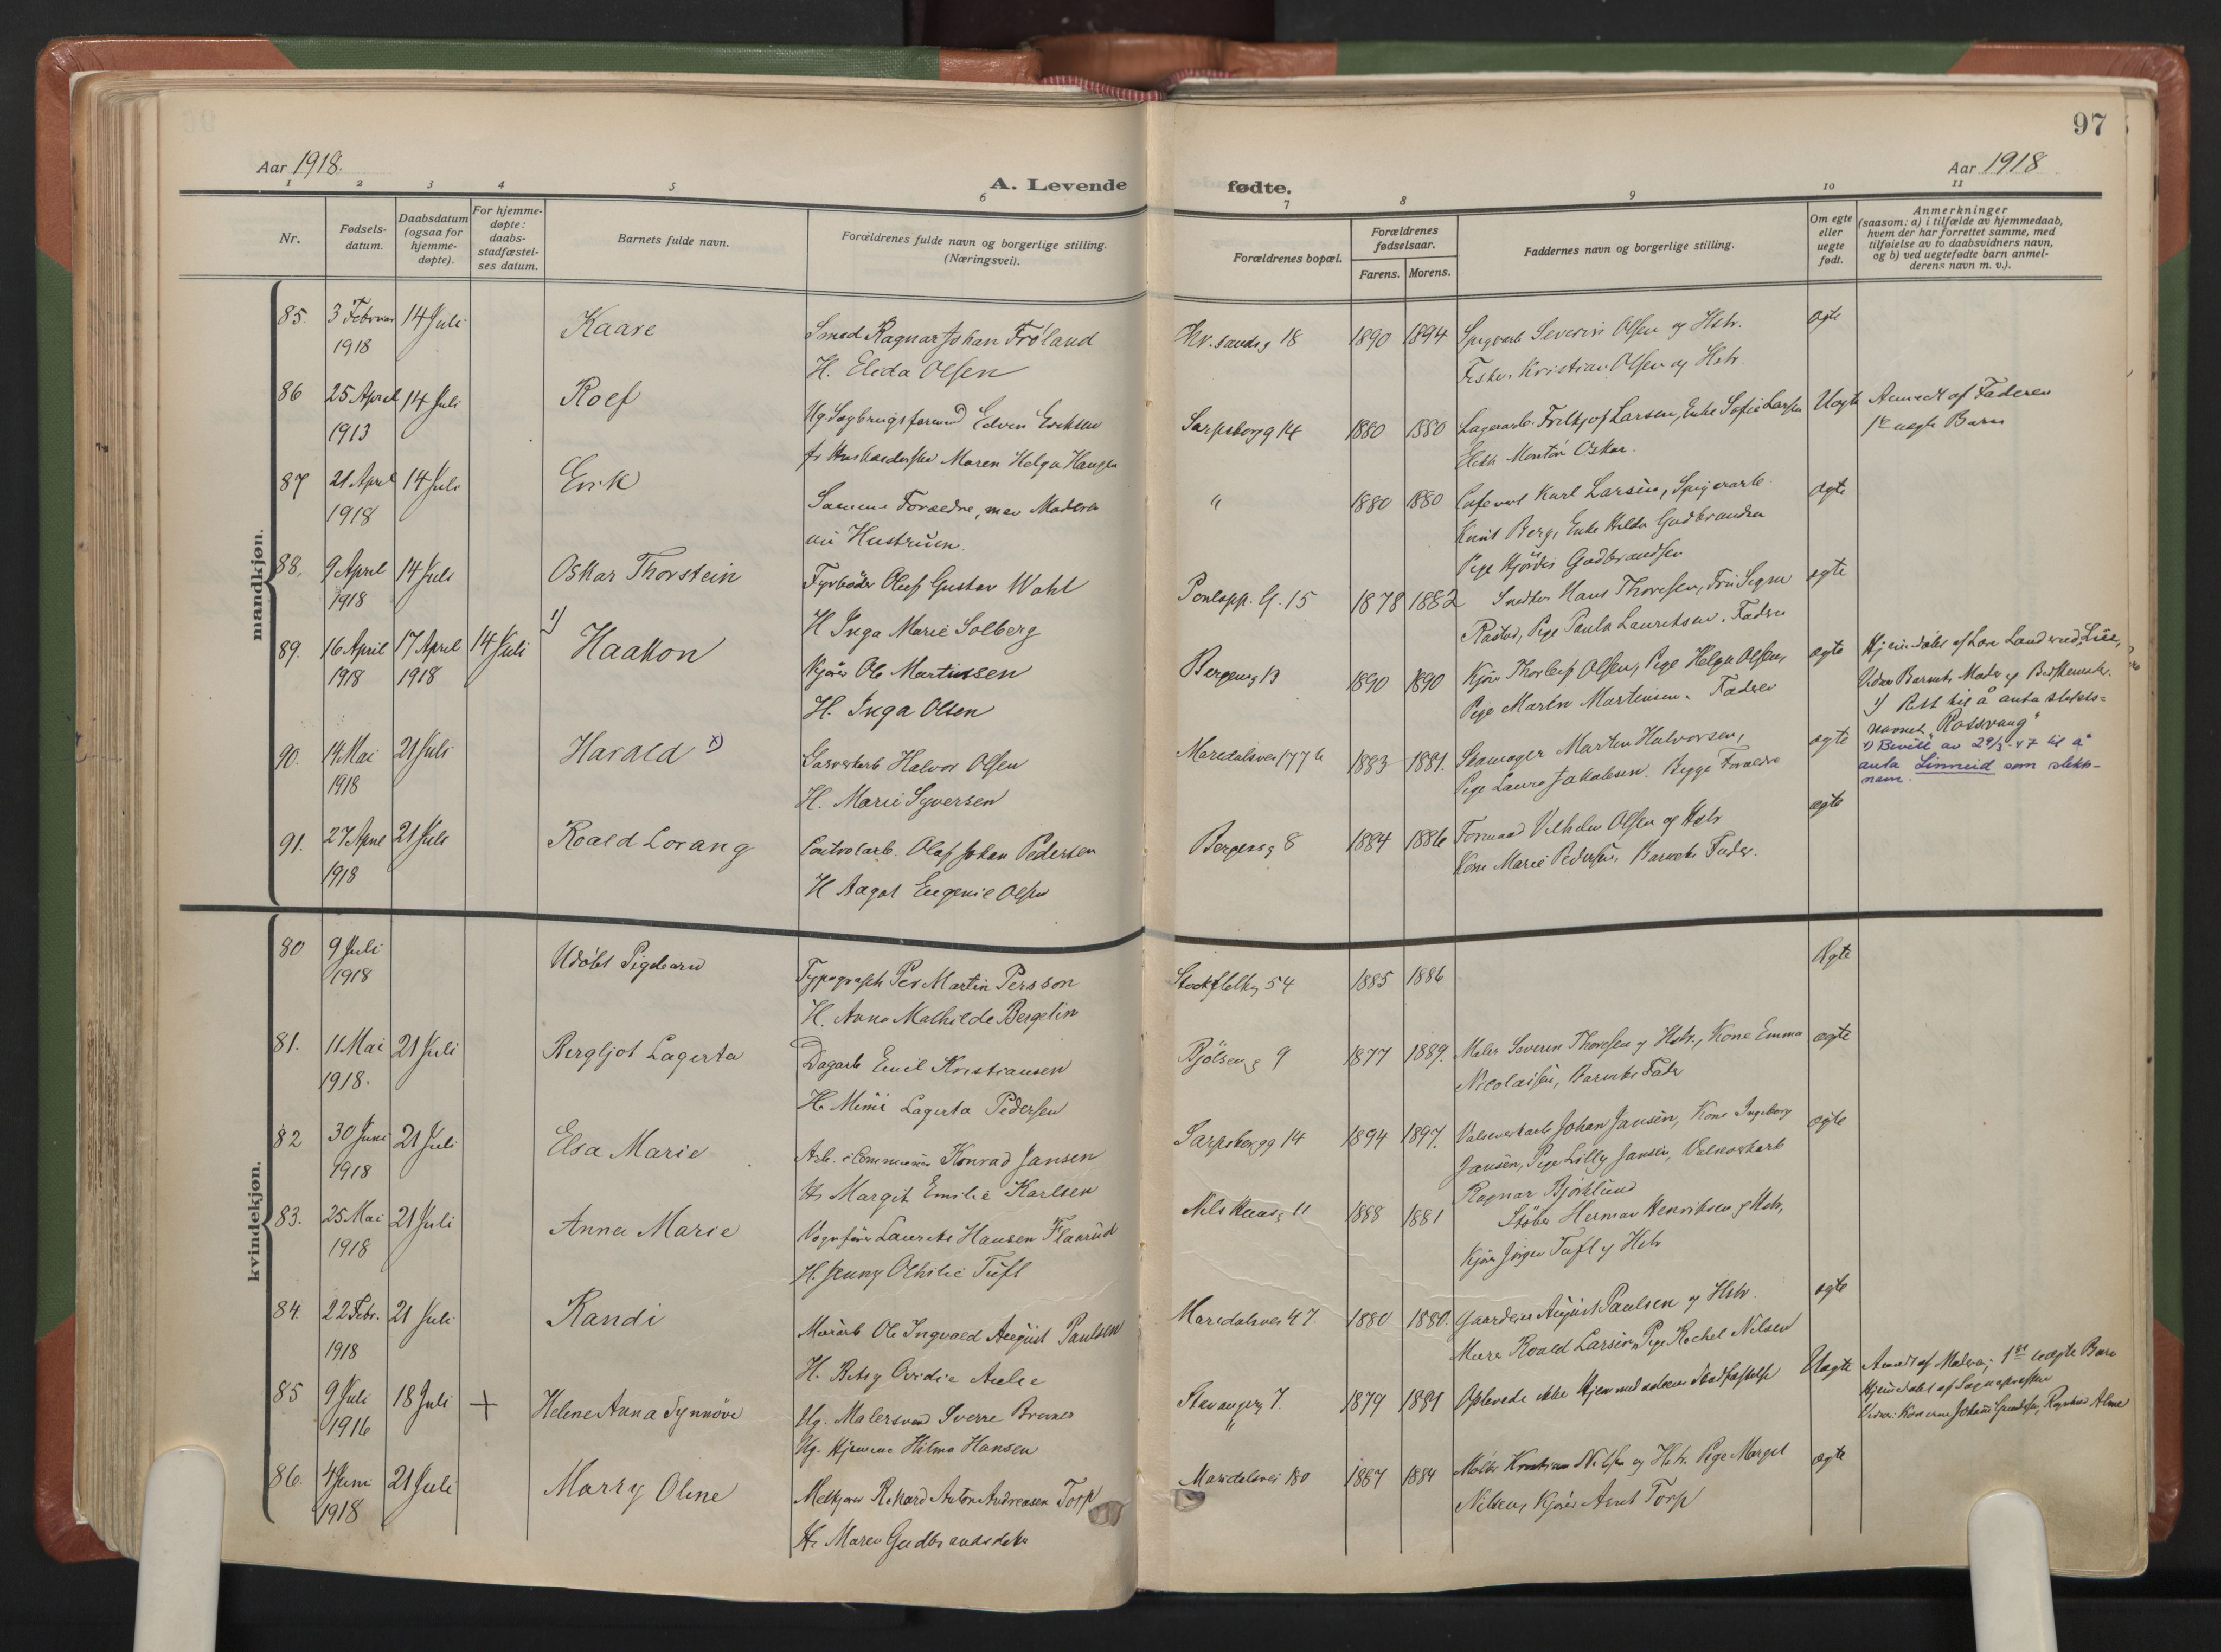 97
Aar 1918.
Aar 1918
A. Levende fødte.
1 2 3 4 5 6 7 8 9 10 11
Nr.
Fødsels-
datum.
Daabsdatum
(ogsaa for
hjemme-
døpte).
For hjemme-
døpte:
daabs-
stadfæstel-
ses datum.
Barnets fulde navn.
Forældrenes fulde navn og borgerlige stilling.
(Næringsvei).
Forældrenes bopæl.
Forældrenes
fødselsaar.
Farens. Morens.
Faddernes navn og borgerlige stilling.
Om egte
eller
uegte
født.
Anmerkninger
(saasom: a) i tilfælde av hjemmedaab,
hvem der har forrettet samme, med
tilføielse av to daabsvidners navn,
og b) ved uegtefødte barn anmel-
derens navn m. v.).
mandkjøn.
85. 3 Februar 14 Juli Kaare Smed Ragnar Johan Frøland 18 1890 1894 Severin Olsen og Hstr. ægte
1918 H. Elida Olsen Fisker Kristian Olsen og Hstr.
86 25 April 14 Juli Rolf Ug. Sagbrugsformand Edvin Eriksen Sarpsborgg 14 1880 1880 Lagerarb. Fritkjof Larsen, Enke Sofie Larsen Uegte Anmeldt af Faderen
1913 fr Husholderske Maren Helga Haugen Elektr. Montør Oskar. 1ste uegte Barn
87 21 April 14 Juli Erik Samme Forældre, men Moderen " 1880 1880 Karl Larsen, Spigerarb. ægte
1918 nu Hustruen. Knut Berg, Enke Hilda Gudbrandsen
Pige Hjørdis Gudbrandsen
88. 9 April 14 Juli Oskar Thorstein Fyrbøder Oluf Gustav Wahl G. 15 1878 1882 Snedker Hans Thoresen, Fru Signe ægte
1918 H Inga Marie Solberg Rastad, Pige Paula Lauritsen. Fadren
89. 16 April 17 April 14 Juli 1) Haakon Kjører Ole Martinsen Bergensg 13 1890 1890 Kjører Thorleif Olsen, Pige Helga Olsen, ægte
1918 1918 H. Inga Olsen Pige Martin Martinsen. Fadren
Vidner Barnets Moder og Bedstemoder.
1) Rett til å anta slekts-
namnet "Rossvang"
90. 14 Mai 21 Juli Harald x) Garverarb Halvor Olsen Maridalsvei 177 b 1883 1881. Skomager Marten Halvorsen, ægte x) Bevill. av 29/3-47 til å
1918 H. Marie Syversen Pige Laura Jakobsen. Begge Forældre anta Linneid som slekts-
navn.
91. 27 April 21 Juli Roald Lorang Controlarb. Olaf Johan Pedersen Bergensg 8 1884 1886 Formand Vilhelm Olsen og Hstr ægte
1918 H Aagot Eugenie Olsen Kone Marie Pedersen. Barnets Fader.
kvindekjøn.
80 9 Juli Udøbt Pigebarn Typograph Per Martin Persson Stockflethg 54 1885 1886 Ægte
1918 H. Anna Mathilde Bergelin
81. 11 Mai 21 Juli Bergljot Lagerta Dagarb Emil Kristiansen Bjölseng 9 1877 1889. Maler Severin Thoresen og Hstr., Kone Emma ægte
1918. H. Mimi Lagerta Pedersen Nicolaisen, Barnets Fader
82 30 Juni 21 Juli Elsa Marie Arb. i Communen Konrad Jansen Sarpsborgg 14 1894 1897. Valseverkarb Johan Jansen, Kone Ingeborg ægte
1918 H. Margit Emilie Karlsen Jansen, Pige Lilly Jansen, Valseverkarb
Ragnar Björklund
83. 25 Mai 21 Juli Anna Marie Vognfører Laurits Hansen Flaarud Nils Huusg 11 1888 1881 Støber Herman Henriksen og Hstr,
1918 H. Jenny Othilie Tuft Kjører Jörgen Tuft og Hstr
84. 22 Febr. 21 Juli Randi Murarb Ole Ingvald August Paulsen Maridalsvei 47. 1880 1880. Gaardeier August Paulsen og Hstr. ægte
1918 H. Betsy Ovidie Murer Roald Larsen, Pige Rachel Nilsen
85 9 Juli 18 Juli + Helene Anna Synnöve Ug. Malersvend Sverre Stavangerg 7. 1879 1881 Oplevede ikke Stadfæstelse Uægte Anmeldt af Moderen; 1ste uægte Barn
1916 Ug. Hjemme Hilma Hansen Hjemmedøbt af Sogneprester
86. 4 Juni 21 Juli Marry Oline Melkjører Rikard Anton Andreasen Torp Maridalsvei 180 1887 1884 Møller Kristian Nilsen og Hstr. Pige Margit ægte
1918 H. Maren Gudbrandsdatter Nilsen, Kjører Arnt Torp